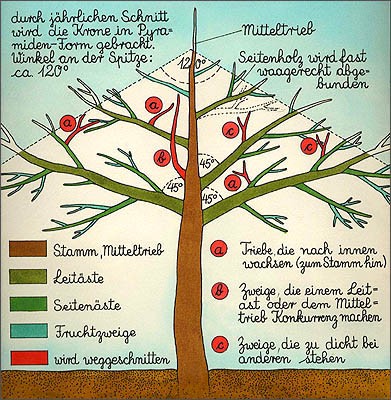 durch jährlichen Schnitt
wird die Krone in Pyra-
miden-Form gebracht.
Winkel an der Spitze:
ca 120°
Mitteltrieb
Seitenholz wird fast
waagerecht abge-
bunden
120°
a
c
b
a
45°
45°
45°
Stamm, Mitteltrieb
Leitäste
Seitenäste
Fruchtzweige
wird weggeschnitten
a Triebe, die nach innen
wachsen (zum Stamm hin)
b Zweige, die einem Leit-
ast oder dem Mittel-
trieb Konkurrenz machen
c Zweige, die zu dicht bei
anderen stehen